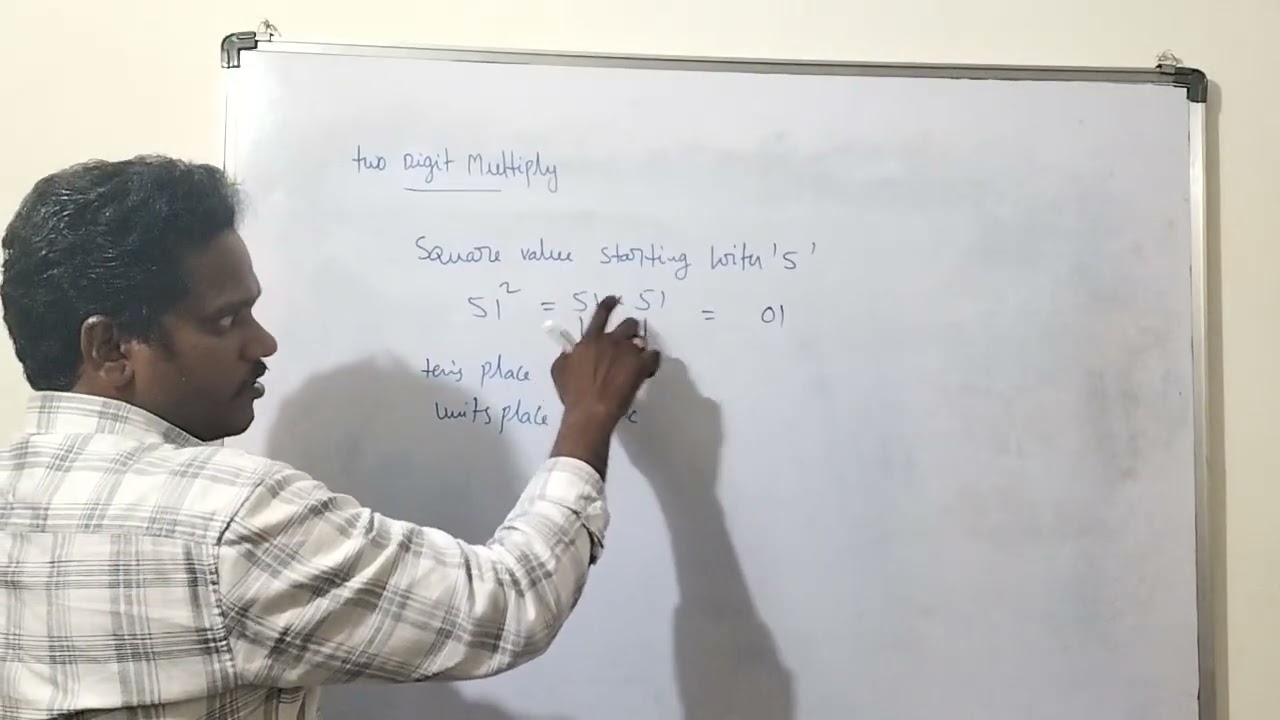 two Digit Multiply
Square value starting with '5'
51² = 51 51 = 01
ten's place
units place